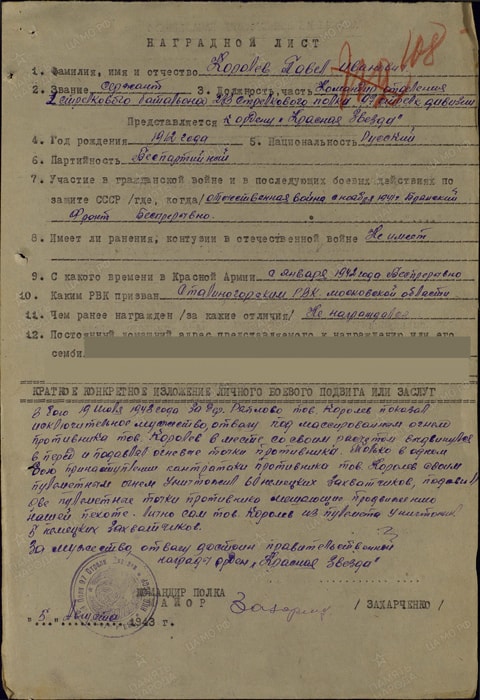 НАГРАДНОЙ ЛИСТ
108
1. Фамилия, имя и отчество Королев Павел Иванович
2. Звание Сержант 3. Должность, часть Командир отделения
2 стрелкового батальона стрелкового полка
Представляется к ордену „Красная Звезда"
4. Год рождения 1912 года 5. Национальность Русский
6. Партийность Беспартийный
7. Участие в гражданской войне и в последующих боевых действиях по
защите СССР /где, когда/ Отечественная война с ноября Брянский
Фронт Беспрерывно.
8. Имеет ли ранения, контузии в отечественной войне Не имеет
9. С какого времени в Красной Армии с января 1942 года Беспрерывно
10. Каким РВК призван Сталиногорским РВК московской области
11. Чем ранее награжден /за какие отличия/ Не награждался
12. Постоянный домашний адрес представляемого к награждению или его
семьи
КРАТКОЕ КОНКРЕТНОЕ ИЗЛОЖЕНИЕ ЛИЧНОГО БОЕВОГО ПОДВИГА ИЛИ ЗАСЛУГ
В бою 19 июля 1943 года за дер. тов. Королев показал
исключительное мужество, отвагу под массированном огнем
противника тов. Королев в месте со своим расчетом выдвинулся
в перед и подавлял огневые точки противника. Только в одном
бою при наступлении контратаки противника тов Королев своим
пулеметным огнем уничтожил 60 немецких захватчиков, подавил
две пулеметные точки противника мешающие продвижению
нашей пехоте. Лично сам тов. Королев из пулемета уничтожил
8 немецких захватчиков.
За мужество, отвагу достоин правительственной
награде орден „Красная Звезда"
КОМАНДИР ПОЛКА
МАЙОР /ЗАХАРЧЕНКО/
"5" Августа 1943 г.